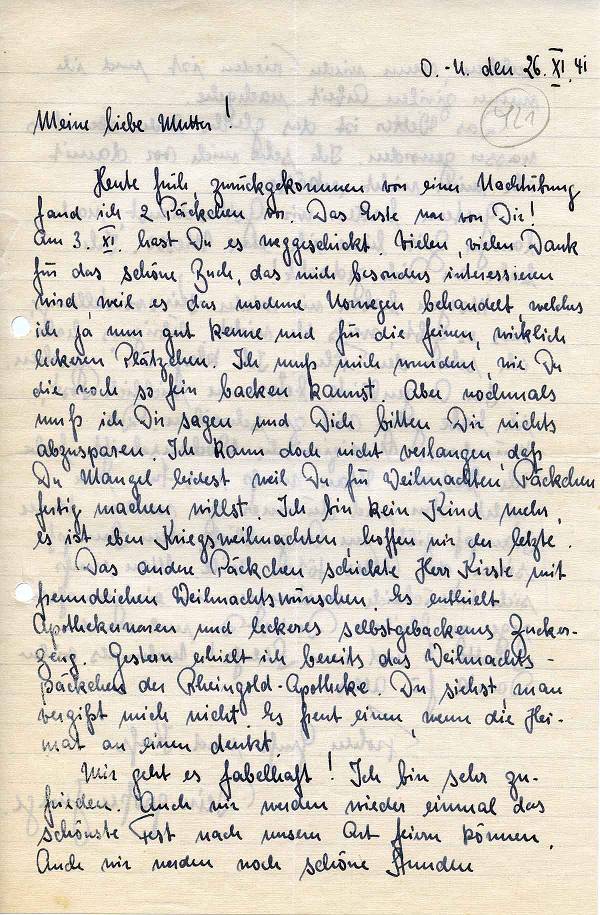 O.-U. den 26. XI. 41
421
Meine liebe Mutter!
Heute früh, zurückgekommen von einer Nachtübung
fand ich 2 Päckchen vor. Das Erste war von Dir!
Am 3. XI. hast Du es weggeschickt. Vielen, vielen Dank
für das schöne Buch, das mich besonders interessieren
wird, weil es das moderne Norwegen behandelt, welches
ich ja nun gut kenne und für die feinen, wirklich
leckeren Plätzchen. Ich muß mich wundern, wie Du
die noch so fein backen kannst. Aber nochmals
muß ich Dir sagen und Dich bitten Dir nichts
abzusparen. Ich kann doch nicht verlangen, daß
Du Mangel leidest weil Du für Weihnachten Päckchen
fertig machen willst. Ich bin kein Kind mehr,
es ist eben Kriegsweihnachten, hoffen wir der letzte.
Das andere Päckchen schickte Herr Kirste mit
freundlichen Weihnachtswünschen. Es enthielt
Apothekerwaren und leckeres selbstgebackenes Zucker-
zeug. Gestern erhielt ich bereits das Weihnachts-
päckchen der Rheingold-Apotheke. Du siehst, man
vergißt mich nicht. Es freut einen, wenn die Hei-
mat an einen denkt.
Mir geht es fabelhaft! Ich bin sehr zu-
frieden. Auch wir werden wieder einmal das
schönste Fest nach unserer Art feiern können.
Auch wir werden noch schöne Stunden